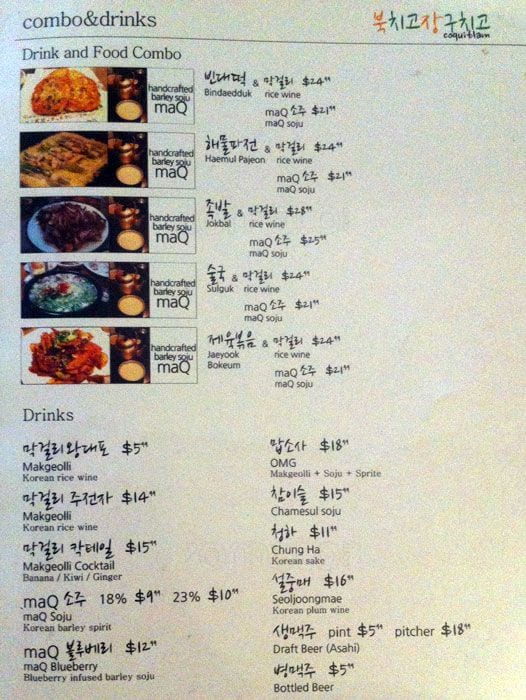 combo&drinks
북치고장구치고
coquitlam
Drink and Food Combo
handcrafted
barley soju
maQ
빈대떡 & 막걸리 $24"
Bindaedduk rice wine
maQ 소주 $21"
maQ soju
handcrafted
barley soju
maQ
해물파전 & 막걸리 $24"
Haemul Pajeon rice wine
maQ 소주 $21"
maQ soju
handcrafted
barley soju
maQ
족발 & 막걸리 $28"
Jokbal rice wine
maQ 소주 $25"
maQ soju
handcrafted
barley soju
maQ
술국 & 막걸리 $24"
Sulguk rice wine
maQ 소주 $21"
maQ soju
handcrafted
barley soju
maQ
제육볶음 & 막걸리 $24"
Jaeyook rice wine
Bokeum
maQ 소주 $21"
maQ soju
Drinks
막걸리 왕대포 $5"
Makgeolli
Korean rice wine
막걸리 주전자 $14"
Makgeolli
Korean rice wine
막걸리 칵테일 $15"
Makgeolli Cocktail
Banana / Kiwi / Ginger
maQ 소주 18% $9" 23% $10"
maQ Soju
Korean barley spirit
maQ 블루베리 $12"
maQ Blueberry
Blueberry infused barley soju
맙소사 $18"
OMG
Makgeolli + Soju + Sprite
참이슬 $15"
Chamesul soju
청하 $11"
Chung Ha
Korean sake
설중매 $16"
Seoljoongmae
Korean plum wine
생맥주 pint $5" pitcher $18"
Draft Beer (Asahi)
병맥주 $5"
Bottled Beer